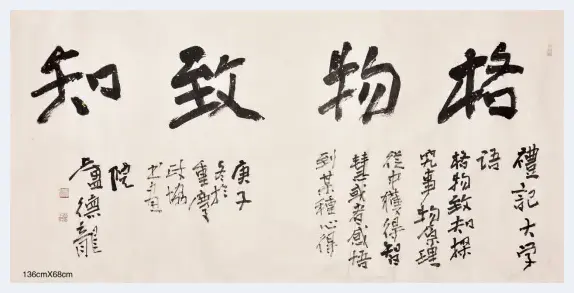 格物致知
禮記大学
語
格物致知探
究事物原理
從中獲得智
慧或者感悟
到某種心得
庚子
冬於
重慶
政協
书画
院
盧德龍
136cmX68cm